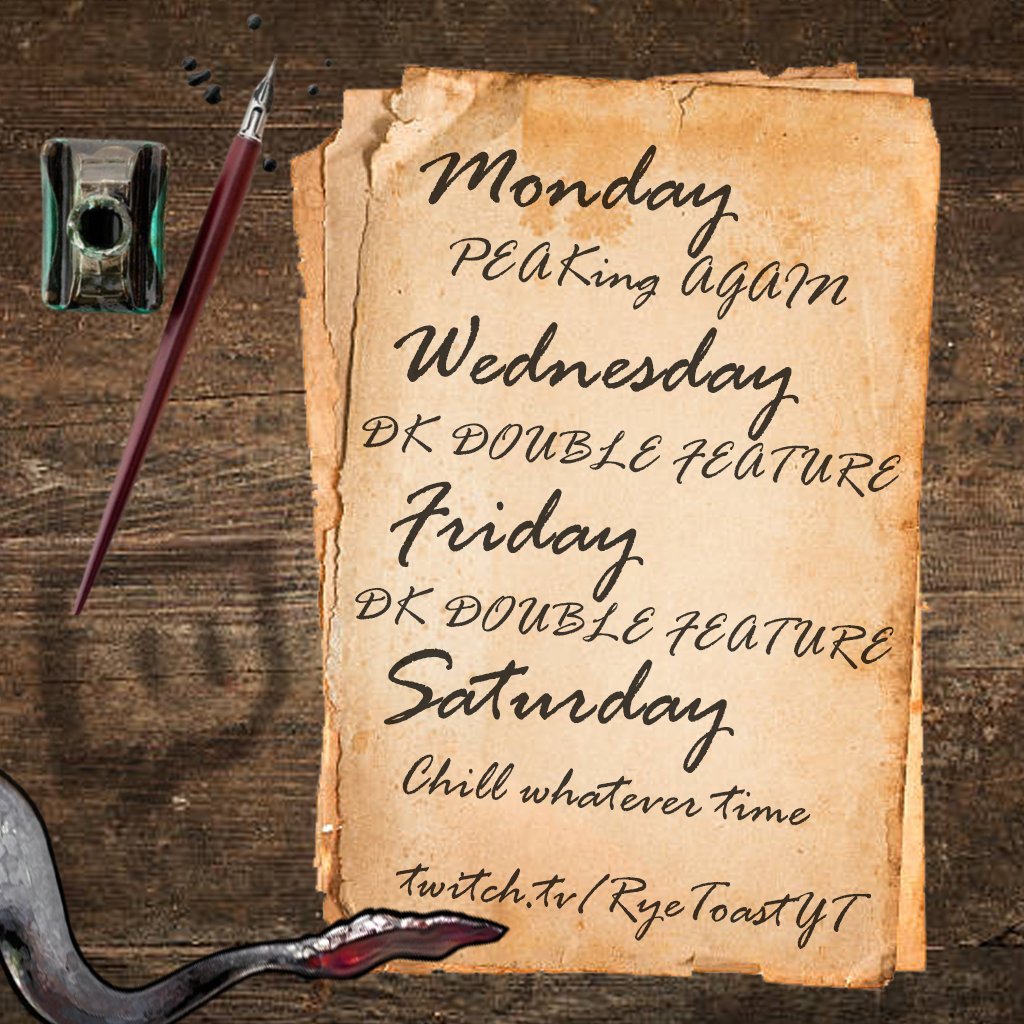 Monday
PEAKing AGAIN
Wednesday
DK DOUBLE FEATURE
Friday
DK DOUBLE FEATURE
Saturday
Chill whatever time
twitch.tv/RyeToastYT